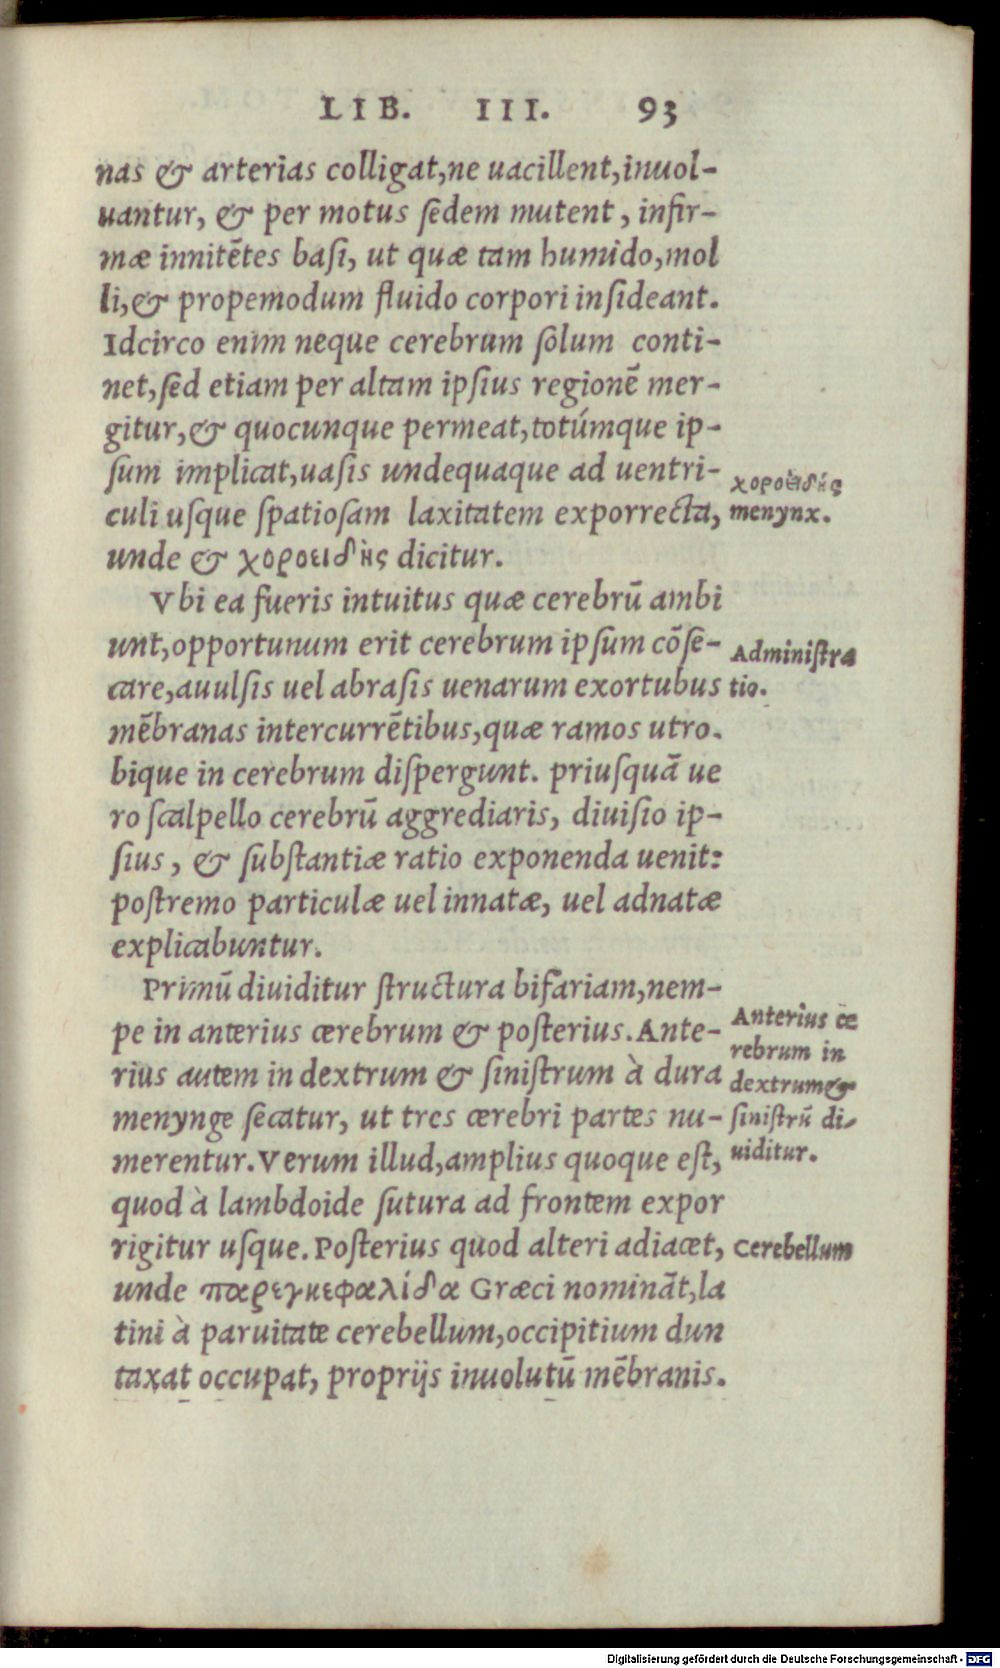 LIB. III. 93
nas & arterias colligat,ne uacillent,inuol-
uantur, & per motus ſedem mutent , infir-
mæ innitẽtes baſi, ut quæ tam humido,mol
li,& propemodum fluido corpori inſideant.
Idcirco enim neque cerebrum ſolum conti-
net,ſed etiam per altam ipſius regionẽ mer-
gitur,& quocunque permeat,totúmque ip-
ſum implicat,uaſis undequaque ad uentri-
culi uſque ſpatioſam laxitatem exporrecta,
unde & χοροειδὴς dicitur.
χοροειδὴς
menynx.
Vbi ea fueris intuitus quæ cerebrũ ambi
unt,opportunum erit cerebrum ipſum cõſe-
care,auulſis uel abraſis uenarum exortubus
mẽbranas intercurrẽtibus,quæ ramos utro-
bique in cerebrum diſpergunt. priuſquã ue
ro ſcalpello cerebrũ aggrediaris, diuiſio ip-
ſius, & ſubſtantiæ ratio exponenda uenit:
poſtremo particulæ uel innatæ, uel adnatæ
explicabuntur.
Adminiſtra
tio.
Primũ diuiditur ſtructura bifariam,nem-
pe in anterius cerebrum & poſterius.Ante-
rius autem in dextrum & ſiniſtrum à dura
menynge ſecatur, ut tres cerebri partes nu-
merentur.Verum illud,amplius quoque eſt,
quod à lambdoide ſutura ad frontem expor
rigitur uſque.Poſterius quod alteri adiacet,
unde παρεγκεφαλίδα Græci nominãt,la
tini à paruitate cerebellum,occipitium dun
taxat occupat, proprijs inuolutũ mẽbranis.
Anterius ce
rebrum in
dextrum&
ſiniſtrũ di-
uiditur.
Cerebellum
Digitalisierung gefördert durch die Deutsche Forschungsgemeinschaft - DFG